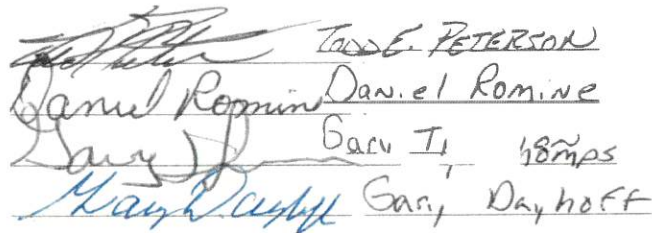 TODD E. PETERSON
Daniel Romine Daniel Romine
Gary
Gary Dayhoff Gary Dayhoff